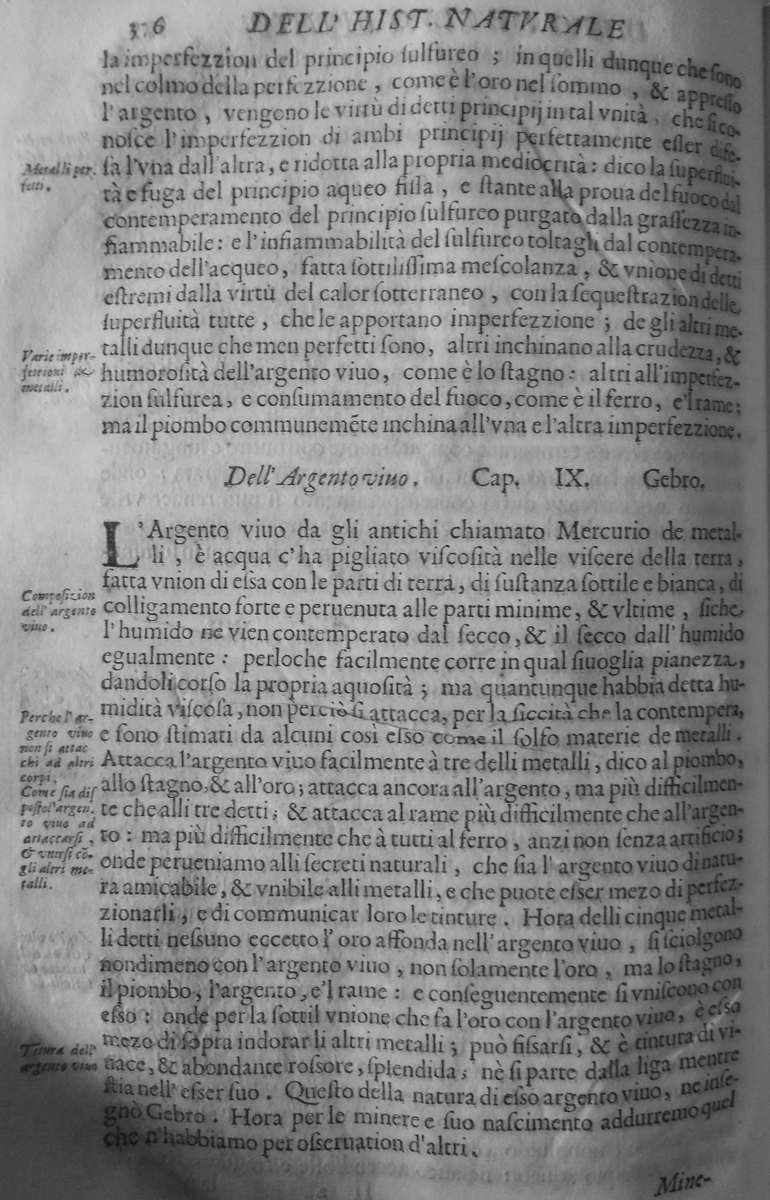 376 DELL' HIST. NATVRALE
la imperfezzion del principio ſulfureo ; in quelli dunque che ſono
nel colmo della perfezzione , come è l'oro nel ſommo , & appreſſo
l'argento , vengono le virtù di detti principij in tal vnità , che ſi co-
noſce l'imperfezzion di ambi principij perfettamente eſſer difе-
Metalli per-
fetti.
ſa l'vna dall'altra, e ridotta alla propria mediocrità : dico la ſuperflui-
tà e fuga del principio aqueo fiſſa , e ſtante alla proua del fuoco dal
contemperamento del principio ſulfureo purgato dalla graſſezza in-
fiammabile : e l'infiammabilità del ſulfureo toltagli dal contempera-
mento dell'acqueo, fatta ſottiliſſima meſcolanza , & vnione di detti
eſtremi dalla virtù del calor ſotterraneo , con la ſequeſtrazion delle
ſuperfluità tutte , che le apportano imperfezzione ; de gli altri me-
Varie imper-
fettioni de
metalli.
talli dunque che men perfetti ſono, altri inchinano alla crudezza, &
humoroſità dell'argento viuo, come è lo ſtagno : altri all'imperfez-
zion ſulfurea, e conſumamento del fuoco, come è il ferro, e'l rame:
ma il piombo communemẽte inchina all'vna e l'altra imperfezzione.
Dell'Argento viuo. Cap. IX. Gebro.
L'Argento viuo da gli antichi chiamato Mercurio de metal-
li , è acqua c'ha pigliato viſcoſità nelle viſcere della terra,
Compoſizion
dell'argento
viuo.
fatta vnion di eſſa con le parti di terra, di ſuſtanza ſottile e bianca, di
colligamento forte e peruenuta alle parti minime, & vltime , ſiche
l'humido ne vien contemperato dal ſecco, & il ſecco dall'humido
egualmente : perloche facilmente corre in qual ſiuoglia pianezza,
dandoli corſo la propria aquoſità ; ma quantunque habbia detta hu-
Perche l'ar-
gento viuo
non ſi attac
chi ad altri
corpi.
midità viſcoſa, non perciò ſi attacca, per la ſiccità che la contempera,
e ſono ſtimati da alcuni coſi eſſo come il ſolfo materie de metalli.
Attacca l'argento viuo facilmente à tre delli metalli, dico al piombo,
Come ſia diſ
poſto l'argen-
to viuo ad
attaccarſi,
& vnirſi cõ
gli altri me-
talli.
allo ſtagno, & all'oro; attacca ancora all'argento, ma più difficilmen-
te che alli tre detti; & attacca al rame più difficilmente che all'argen-
to : ma più difficilmente che à tutti al ferro , anzi non ſenza artificio;
onde perueniamo alli ſecreti naturali , che ſia l'argento viuo di natu-
ra amicabile, & vnibile alli metalli, e che puote eſſer mezo di perfez-
zionarli, e di communicar loro le tinture . Hora delli cinque metal-
li detti neſſuno eccetto l'oro affonda nell'argento viuo , ſi ſciolgono
nondimeno con l'argento viuo , non ſolamente l'oro , ma lo ſtagno,
il piombo, l'argento, e'l rame : e conſeguentemente ſi vniſcono con
eſſo : onde per la ſottil vnione che fa l'oro con l'argento viuo, è eſſo
mezo di ſopra indorar li altri metalli ; può fiſſarſi, & è tintura di vi-
Titura dell'
argento viuo
uace, & abbondante roſſore, ſplendida, nè ſi parte dalla liga mentre
ſtia nell'eſſer ſuo . Queſto della natura di eſſo argento viuo, ne inſe-
gnò Gebro . Hora per le minere e ſuo naſcimento addurremo quel
che n'habbiamo per oſſeruation d'altri.
Mine-